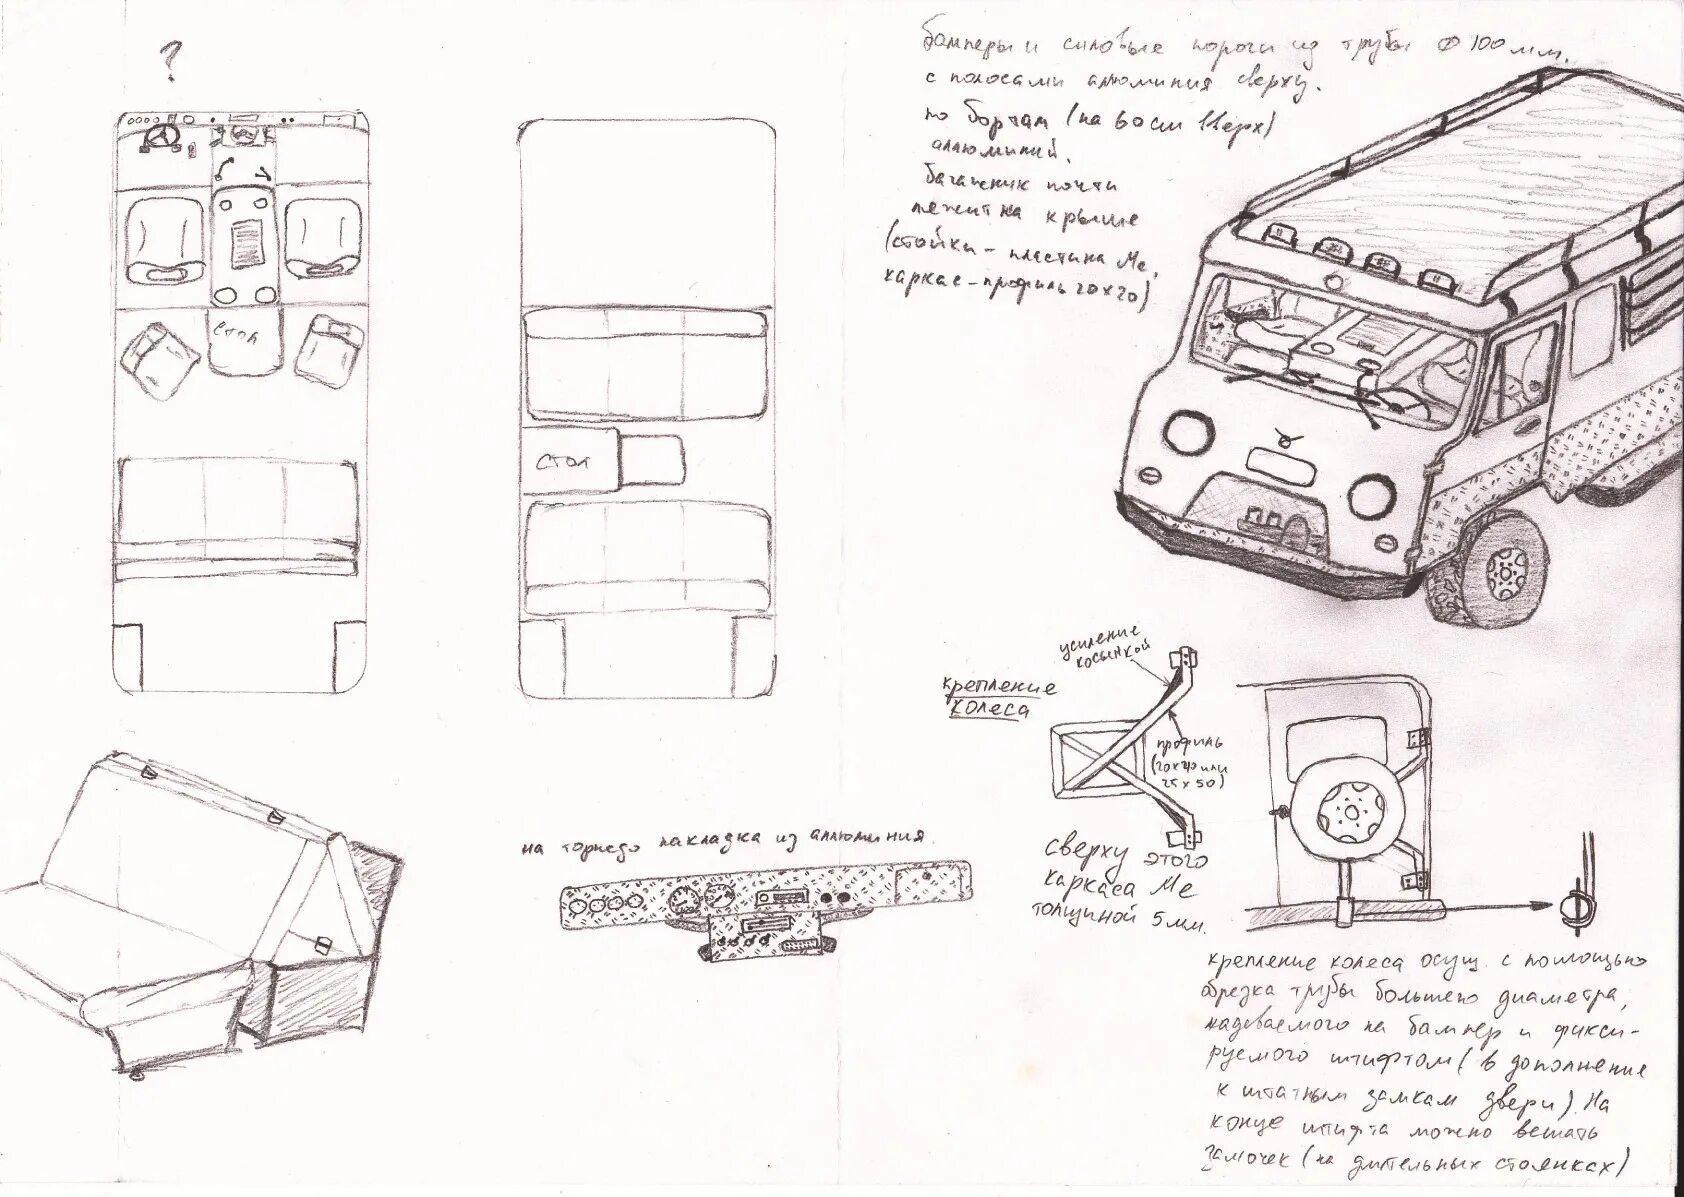 ?
стол
стол
бамперы и силовые пороги из трубы ⌀ 100 мм.
с полосами алюминия сверху.
по бортам (на 60 см вверх)
аллюминий.
багажник почти
лежит на крыше
(стойки - пластина Ме,
каркас - профиль 20х20)
усиление
косынкой
крепление
колеса
профиль
(20х40 или
25х50)
сверху этого
каркаса Ме
толщиной 5 мм.
на торпедо накладка из аллюминия.
крепление колеса осущ. с помощью
обрезка трубы большего диаметра,
надеваемого на бампер и фикси-
руемого штифтом (в дополнение
к штатным замкам двери). На
конце штифта можно вешать
замочек (на длительных стоянках)